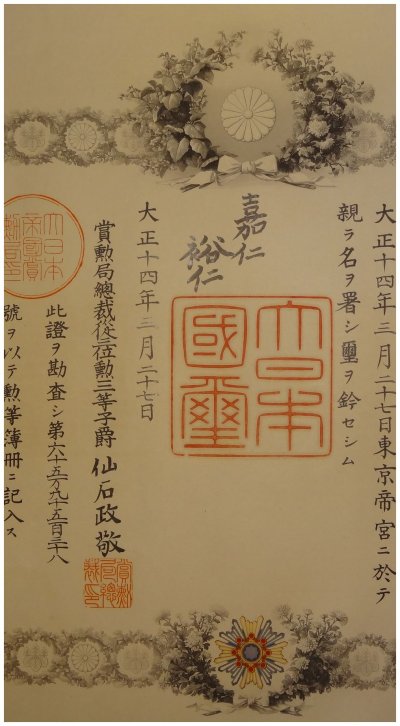 大正十四年三月二十七日東京帝宮ニ於テ
親ラ名ヲ署シ璽ヲ鈐セシム
嘉仁
裕仁
大日本
國璽
大正十四年三月二十七日
賞勲局總裁從三位勲三等子爵 仙石政敬
此證ヲ勘査シ第六十五万九千五百三十八
號ヲ以テ勲等簿冊ニ記入ス
大日本
帝國賞
勲局印